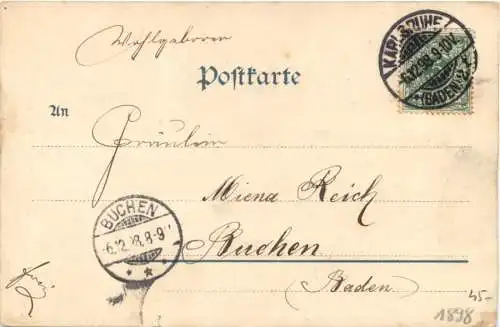 Wohlgeboren
KARLSRUHE
6.12.98.9-10V.
(BADEN) 2.
Postkarte
An
Fräulein
Miena Reich
BUCHEN
6.12.98.8-9
Buchen
(Baden)
45-
1898